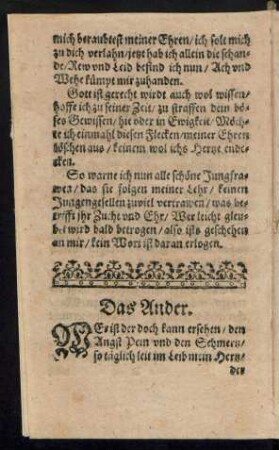 mich beraubtest meiner Ehren/ich solt mich
zu dich verlahn/jetzt hab ich allein die schan-
de/Rew vnd Leid befind ich nun/Ach vnd
Wehe kümpt mir zuhanden.
Gott ist gerecht wirdt auch wol wissen/
hoffe ich zu seiner Zeit/zu straffen dein bö-
ses Gewissen/hie oder in Ewigkeit/Möch-
te ich einmahl diesen Flecken/meiner Ehren
löschen aus/keinem wol ichs Hertze ende-
cken.
So warne ich nun alle schöne Jungfra-
wen/das sie folgen meiner Lehr/keinen
Junggengesellen zuviel vertrawen/was be-
trifft ihr Zucht vnd Ehr/Wer leicht gleu-
bet wird bald betrogen/also ists geschehen
an mir/kein Wort ist daran erlogen.
Das Ander.
WEr ist der doch kann ersehen/den
Angst Pein vnd den Schmertz/
so täglich leit im Leib mein Hertz/
der